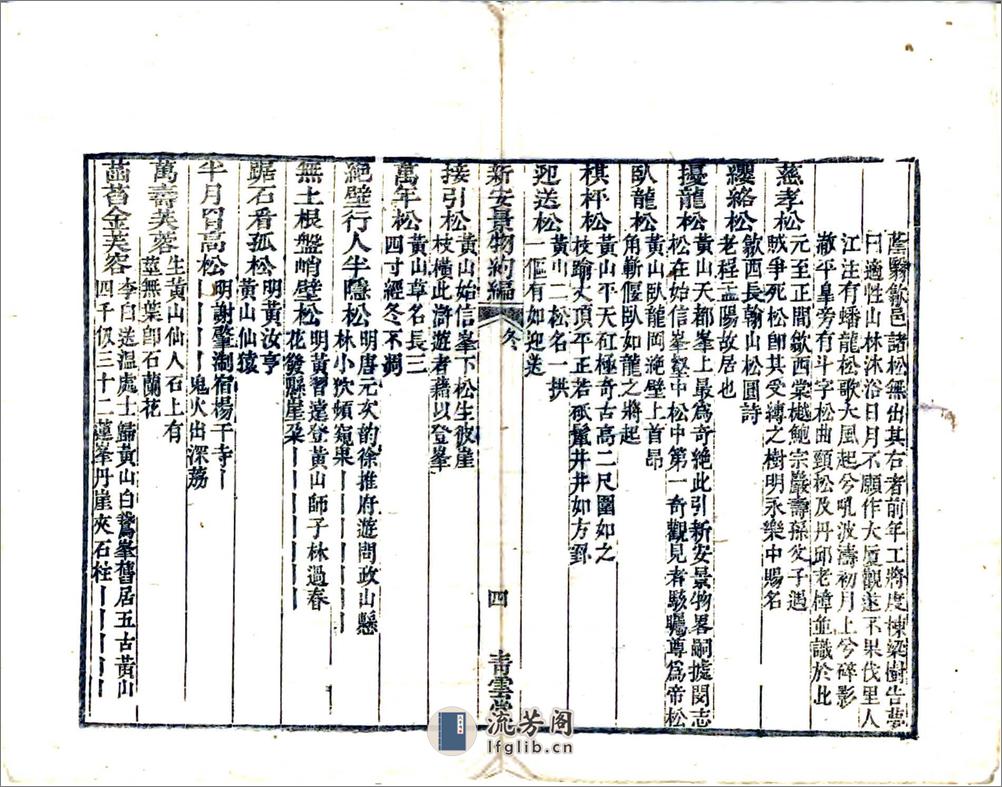 蔭翳歙邑諸松無出其右者前年工將度棟梁樹告夢
曰適性山林沐浴日月不願作大厦觀遂不果伐里人
江注有蟠龍松歌大風起兮吼波濤初月上兮碎影
澈平臯旁有斗字松曲頸松及丹邱老樟並識於此
慈孝松
元至正間歙西棠樾鮑宗巖壽孫父子遇
賊爭死松卽其受縛之樹明永樂中賜名
纓絡松
歙西長翰山松圓詩
老程孟陽故居也
擾龍松
黃山天都峯上最爲奇絶此引新安景物畧嗣據閔志
松在始信峯壑中松中第一奇觀見者駭矚尊爲帝松
臥龍松
黃山臥龍岡絶壁上首昂
角嶄偃臥如龍之將起
棋枰松
黃山平天矼極奇古高二尺圍如之
枝踰丈頂平正若砥鬣井井如方罫
迎送松
黃山二松名一拱
一傴有如迎送
新安景物約編
冬
四
青雲堂
接引松
黃山始信峯下松生彼崖
枝橫此滸遊者藉以登峯
萬年松
黃山草名長三
四寸經冬不凋
絕壁行人半隱松
明唐元次韵徐推府遊問政山懸
林小狖頻窺果
無土根盤峭壁松
明黃習遠登黃山師子林過春
花發懸崖朶
踞石看孤松
明黃汝亨
黃山仙猿
半月冐高松
明謝肇淛宿楊干寺
鬼火出深荔
萬壽芙蓉
生黃山仙人石上有
莖無葉卽石蘭花
菡萏金芙容
李白送溫處士歸黃山白鵞峯舊居五古黃山
四千仭三十二蓮峯丹崖夾石柱
流芳阁
lfglib.cn